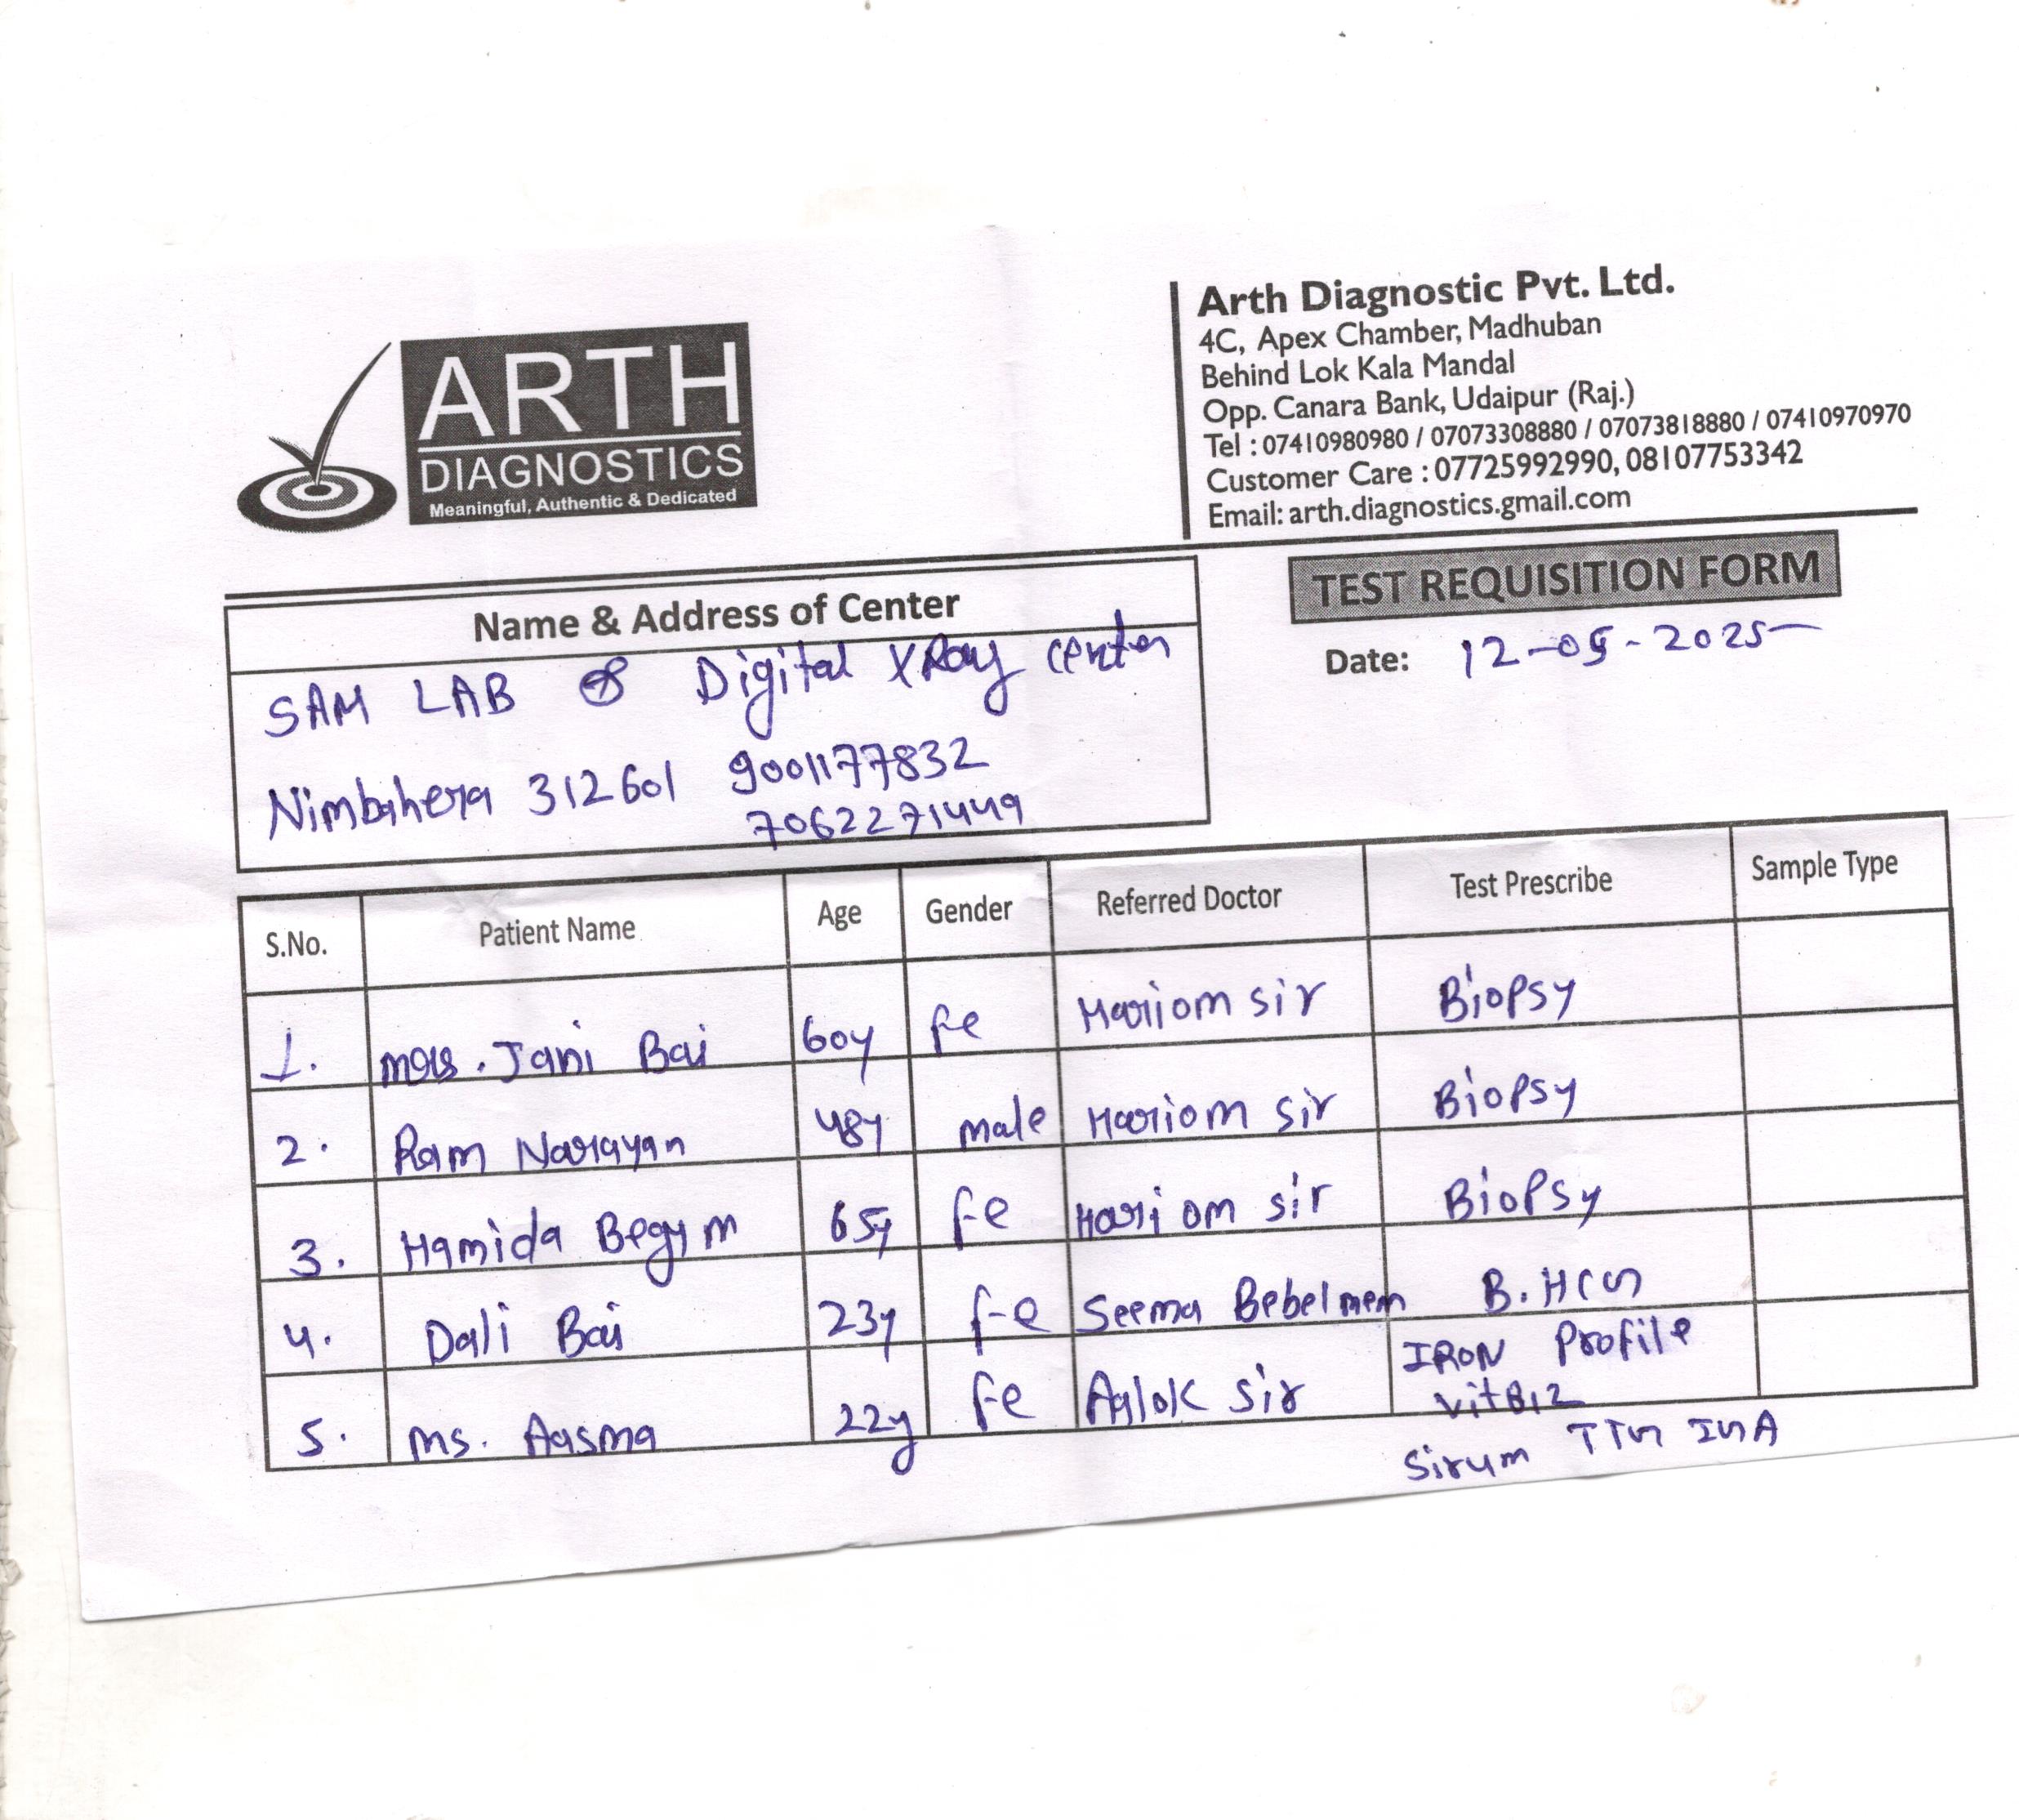 ARTH
DIAGNOSTICS
Meaningful, Authentic & Dedicated
Arth Diagnostic Pvt. Ltd.
4C, Apex Chamber, Madhuban
Behind Lok Kala Mandal
Opp. Canara Bank, Udaipur (Raj.)
Tel : 07410980980 / 07073308880 / 07073818880 / 07410970970
Customer Care : 07725992990, 08107753342
Email: arth.diagnostics.gmail.com
TEST REQUISITION FORM
Date: 12-05-2025
Name & Address of Center
SAM LAB & Digital XRay center
Nimbahera 312601 9001177832
7062271449
S.No. Patient Name Age Gender Referred Doctor Test Prescribe Sample Type
1. mrs. Jani Bai 60y fe Hariom sir Biopsy
2. Ram Narayan 48y male Hariom sir Biopsy
3. Hamida Begum 65y fe Hariom sir Biopsy
4. Dali Bai 23y fe Seema Bebel mem B.HCG
5. ms. Aasma 22y fe Aalok sir IRON Profile
VitB12
Sirum TTG IGA